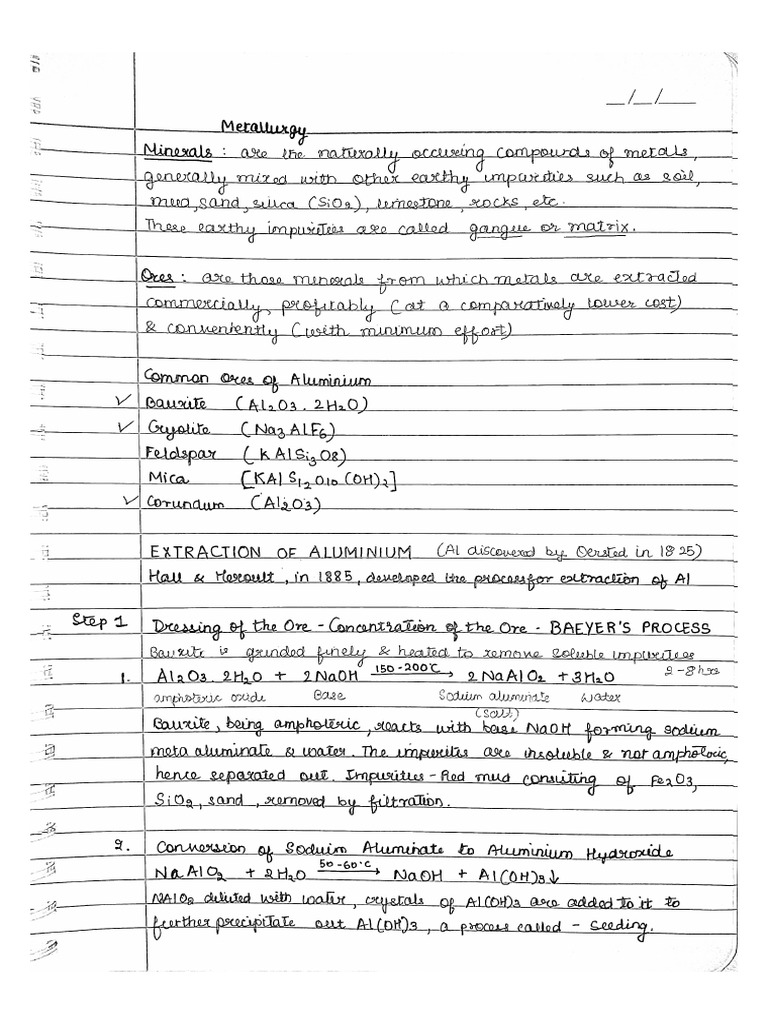 _/_/__
Metallurgy
Minerals : are the naturally occuring compounds of metals,
generally mixed with other earthy impurities such as soil,
mud, sand, silica (SiO2), limestone, rocks, etc.
These earthy impurities are called gangue or matrix.
Ores : are those minerals from which metals are extracted
commercially, profitably (at a comparatively lower cost)
& conveniently (with minimum effort)
Common Ores of Aluminium
✓ Bauxite (Al2O3.2H2O)
✓ Cryolite (Na3AlF6)
Feldspar (KAlSi3O8)
Mica [KAlSi2O10(OH)2]
✓ Corundum (Al2O3)
EXTRACTION OF ALUMINIUM (Al discovered by Oersted in 1825)
Hall & Heroult, in 1885, developed the process for extraction of Al
Step 1 Dressing of the Ore - Concentration of the Ore - BAEYER'S PROCESS
Bauxite is grinded finely & heated to remove soluble impurities
1. Al2O3.2H2O + 2NaOH 150-200°C → 2NaAlO2 + 3H2O 2-8hrs
amphoteric oxide Base Sodium aluminate water
(salt)
Bauxite, being amphoteric, reacts with base NaOH forming sodium
meta aluminate & water. The impurites are insoluble & not amphoteric,
hence separated out. Impurities - Red mud consisting of Fe2O3,
SiO2, sand, removed by filtration.
2. Conversion of Sodium Aluminate to Aluminium Hydroxide
NaAlO2 + 2H2O 50-60°C → NaOH + Al(OH)3↓
NAlO2 diluted with water, crystals of Al(OH)3 are added to it to
further precipitate out Al(OH)3, a process called - seeding.